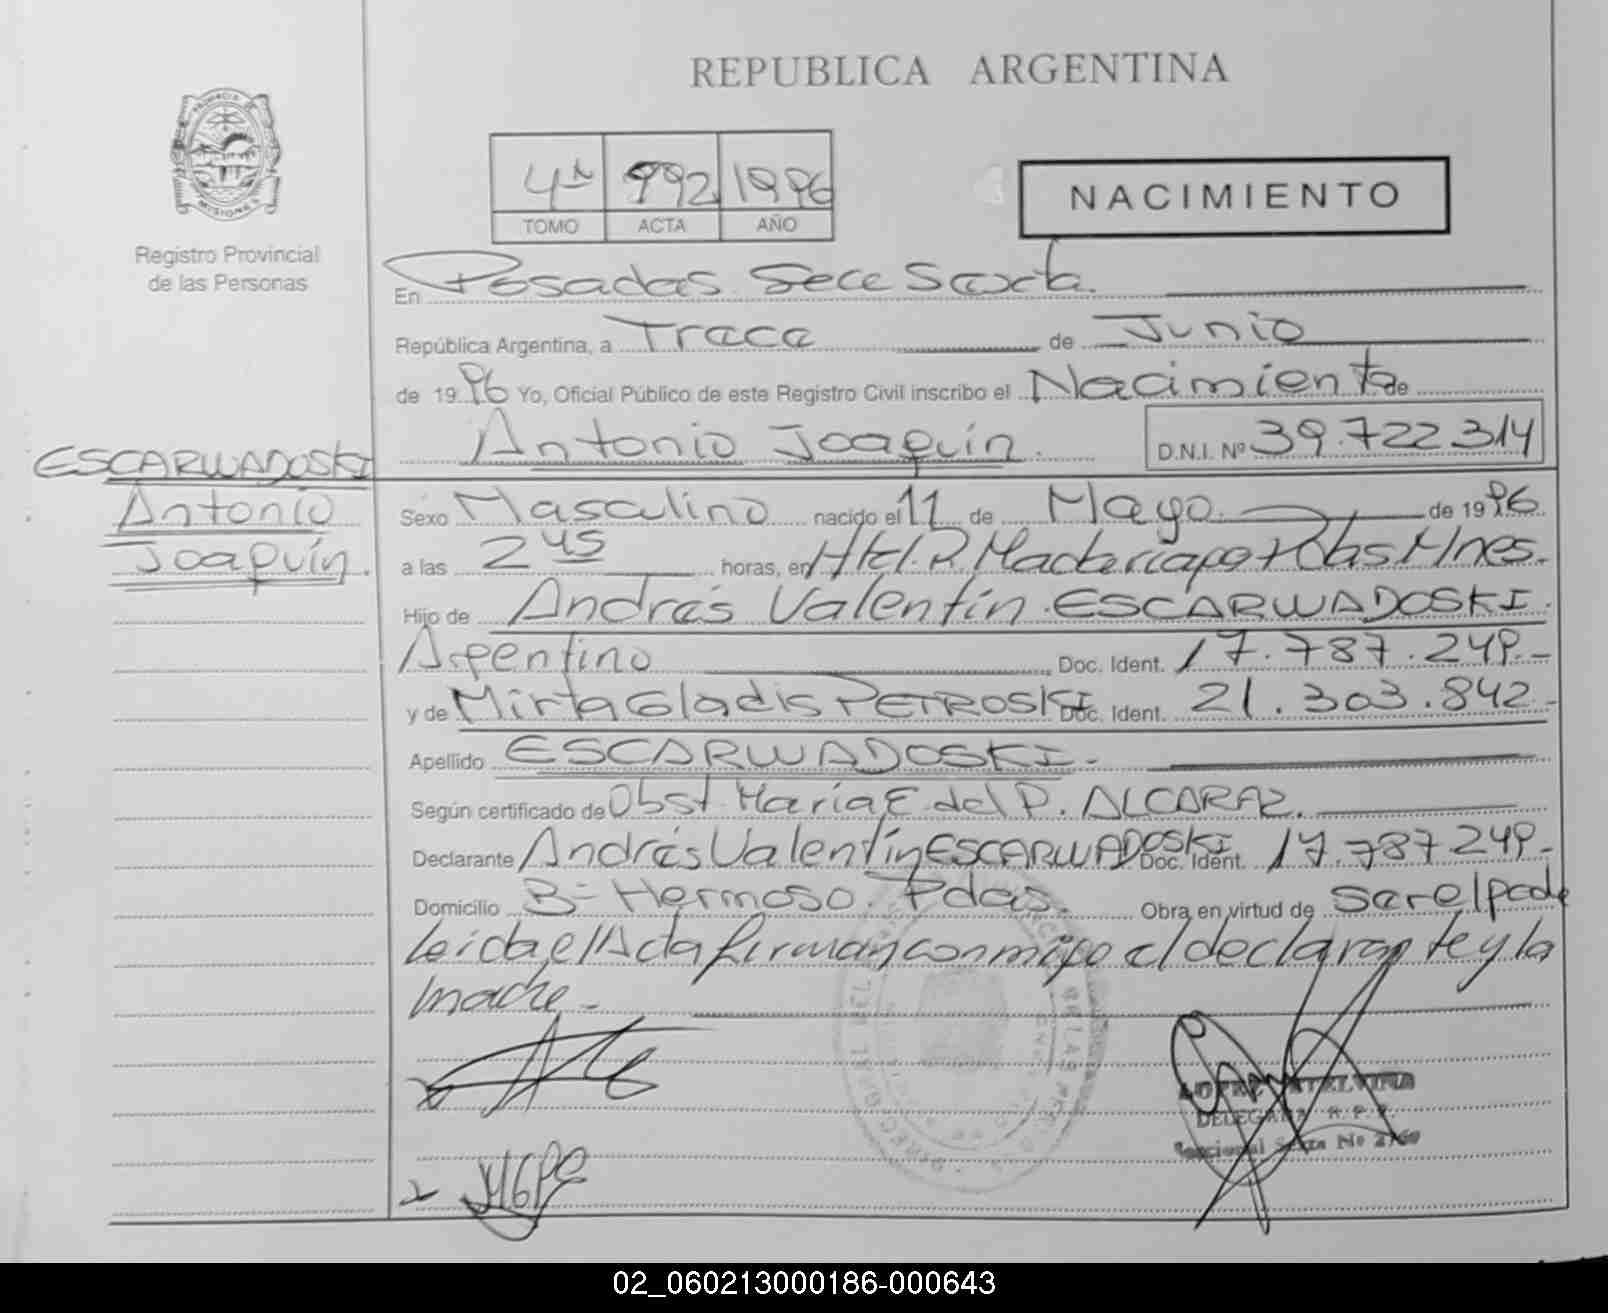 REPUBLICA ARGENTINA
PROVINCIA DE
MISIONES
Registro Provincial
de las Personas
4to 992 1996
TOMO ACTA AÑO
NACIMIENTO
En Posadas Secc Sexta.
República Argentina, a Trece de Junio
de 1996 Yo, Oficial Público de este Registro Civil inscribo el Nacimiento de
Antonio Joaquín. D.N.I. Nº 39.722.314
ESCARWADOSKI
Antonio
Joaquín.
Sexo Masculino nacido el 11 de Mayo de 1996.
a las 2 45 horas, en Pdas Mnes.
Hijo de Andrés Valentín ESCARWADOSKI
Argentino Doc. Ident. 17.787.249.-
y de Mirta Gladis PETROSKI Doc. Ident. 21.303.842-
Apellido ESCARWADOSKI.-
Según certificado de Obst. María E. del P. ALCARAZ.
Declarante Andrés Valentín ESCARWADOSKI Doc. Ident. 17.787249-
Domicilio Bº Hermoso. Pdas. Obra en virtud de
Leida el Acta firman conmigo el declarante y la
madre.-
DELEGADA R.P.P.
Seccional Sexta No
02_060213000186-000643